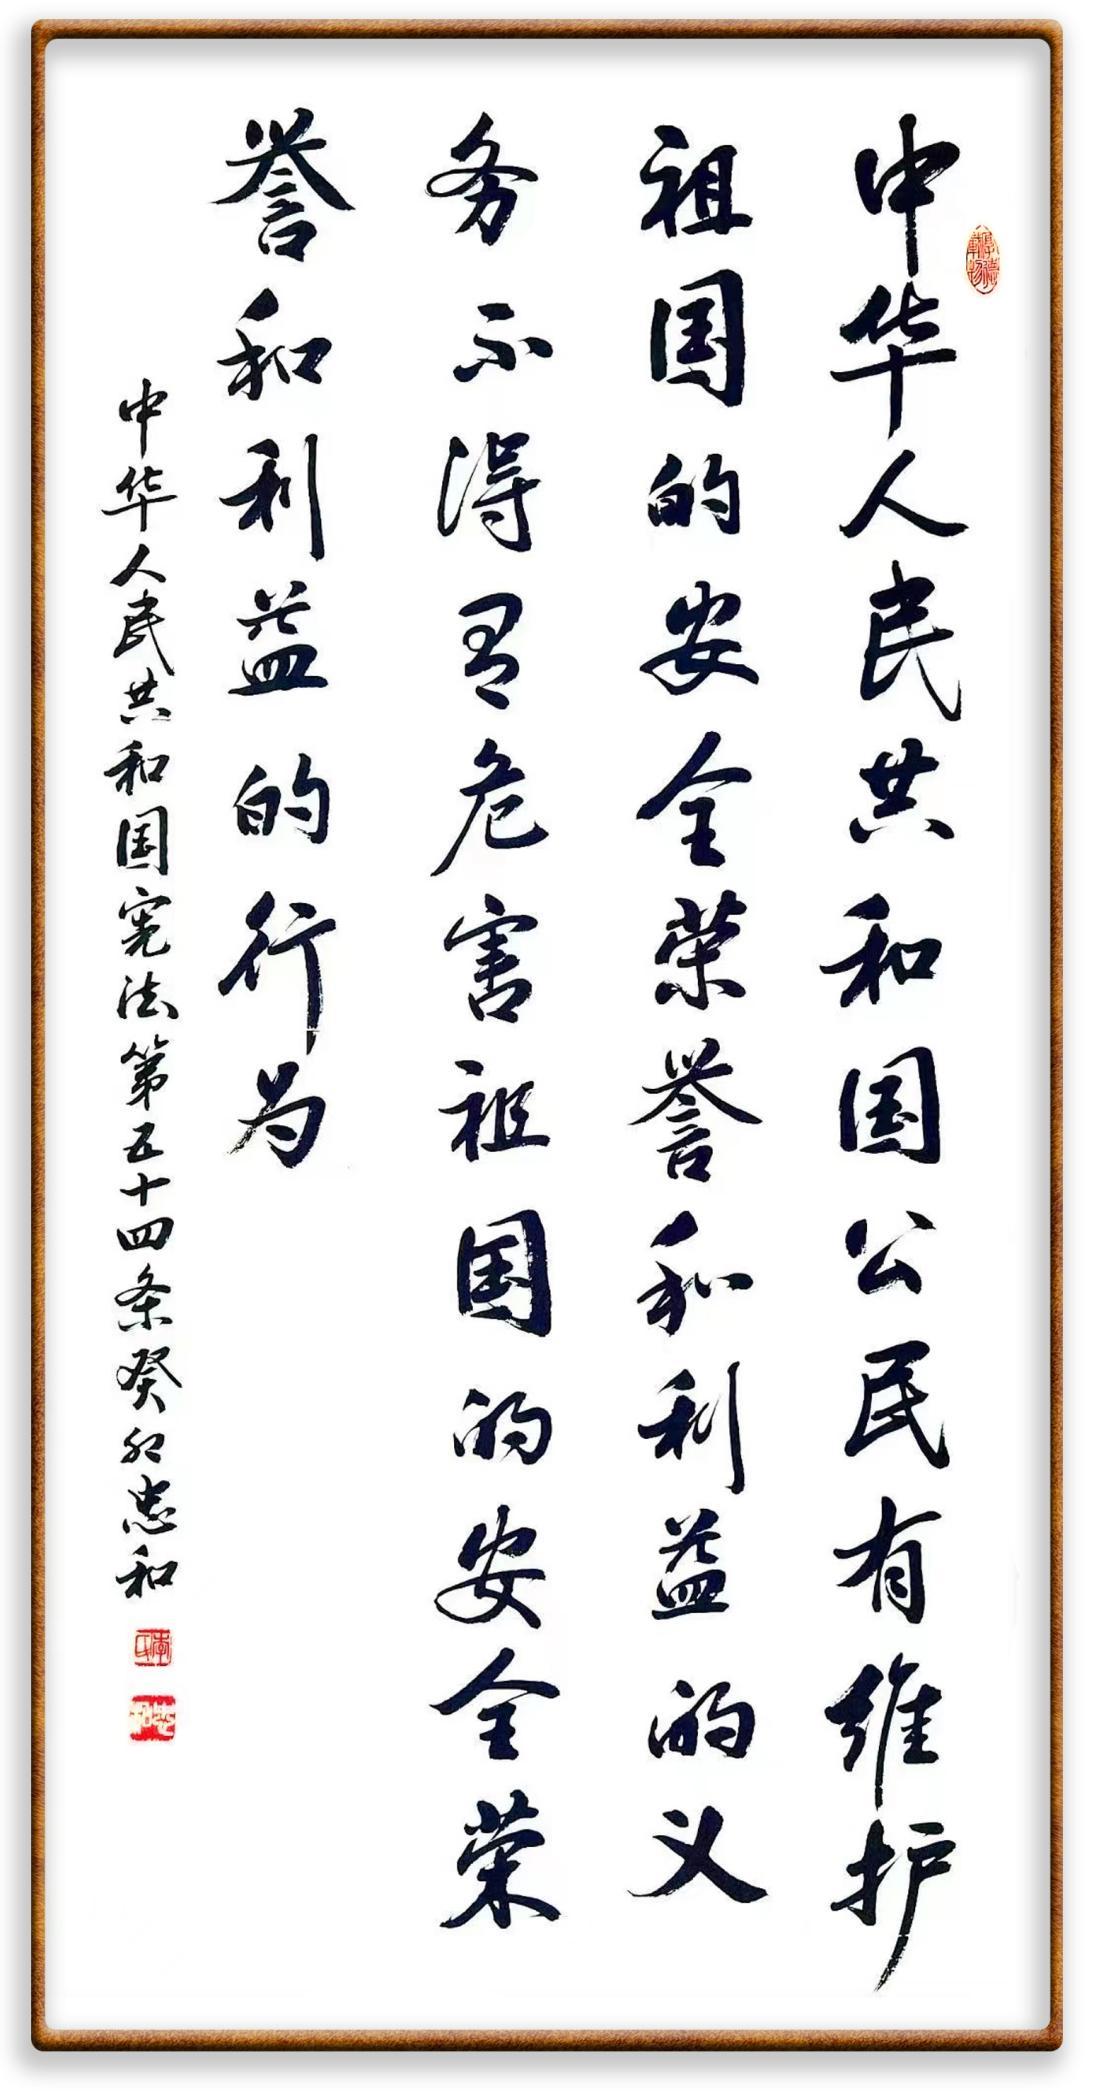 中华人民共和国公民有维护
祖国的安全荣誉和利益的义
务不得有危害祖国的安全荣
誉和利益的行为
中华人民共和国宪法第五十四条癸卯忠和
厚德载物
李氏
忠和